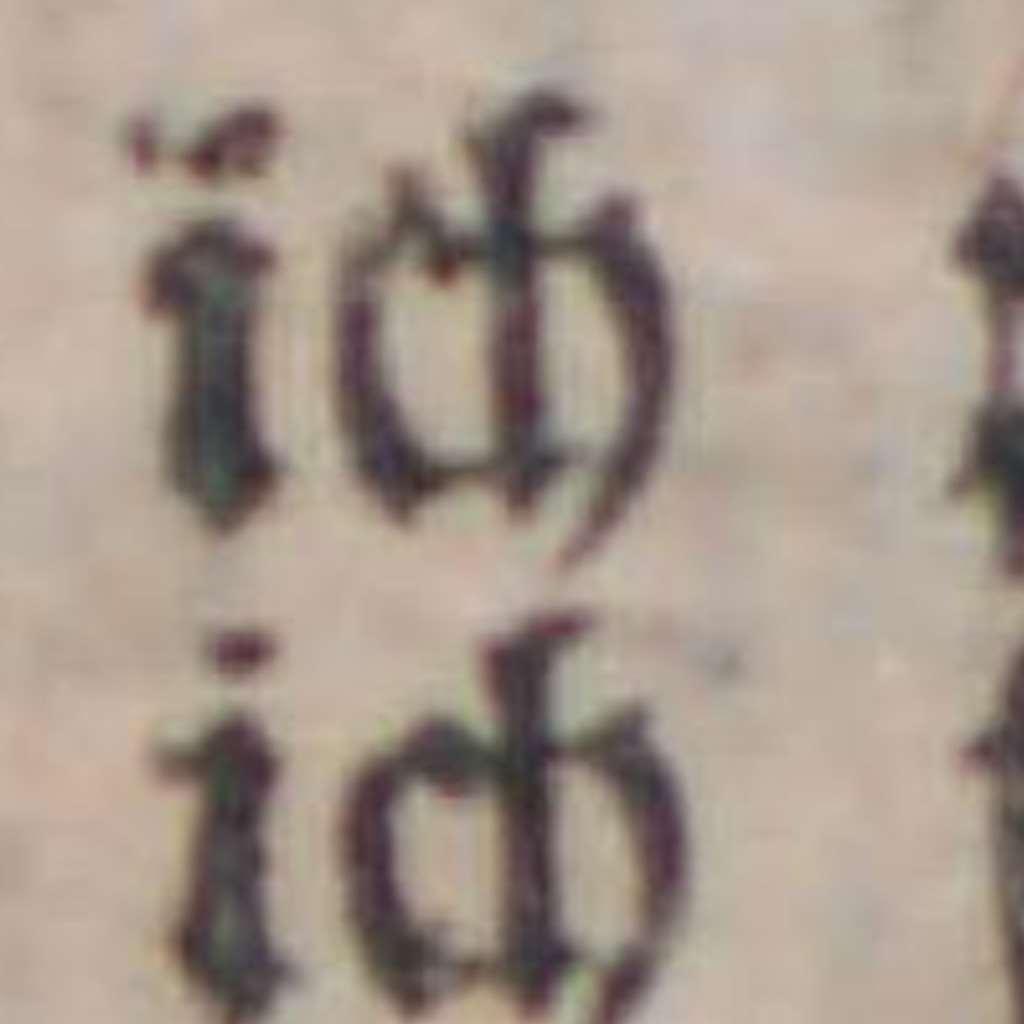 ich
ich